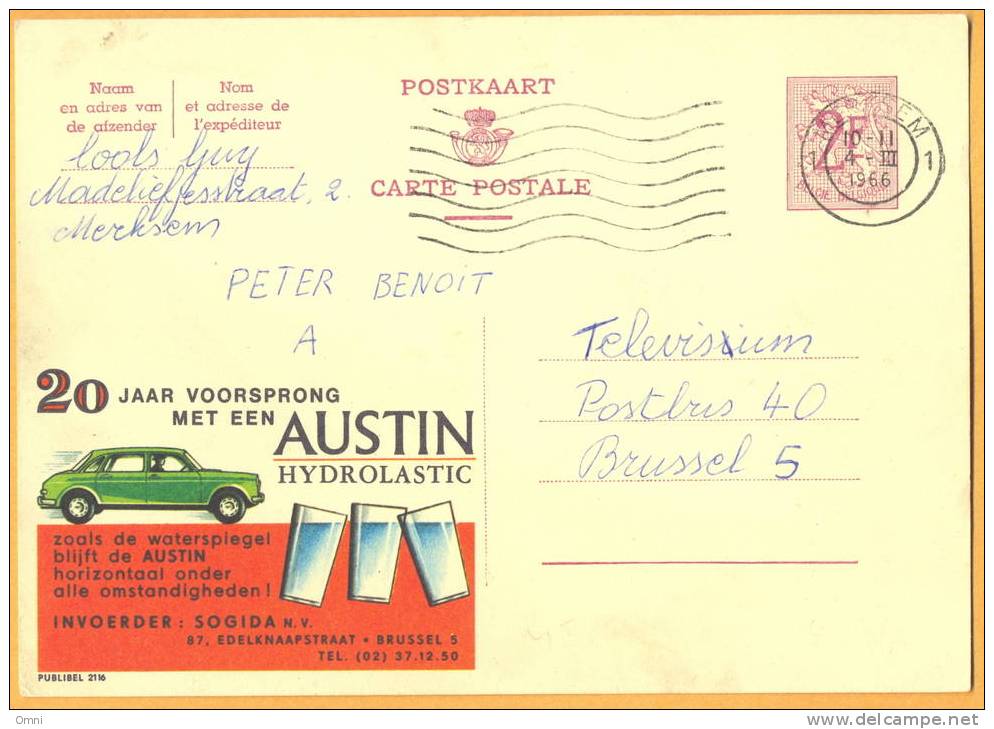 Naam
en adres van
de afzender
Nom
et adresse de
l'expéditeur
POSTKAART
CARTE POSTALE
2F
10-11
4-III
1966
1
1
Cools Guy
Madeliefjesstraat, 2.
Merksem
PETER BENOIT
A
Televisium
Postbus 40
Brussel 5
20 JAAR VOORSPRONG
MET EEN AUSTIN
HYDROLASTIC
zoals de waterspiegel
blijft de AUSTIN
horizontaal onder
alle omstandigheden!
INVOERDER : SOGIDA N.V.
87, EDELKNAAPSTRAAT • BRUSSEL 5
TEL. (02) 37.12.50
PUBLIBEL 2116
Omni
www.delcampe.net